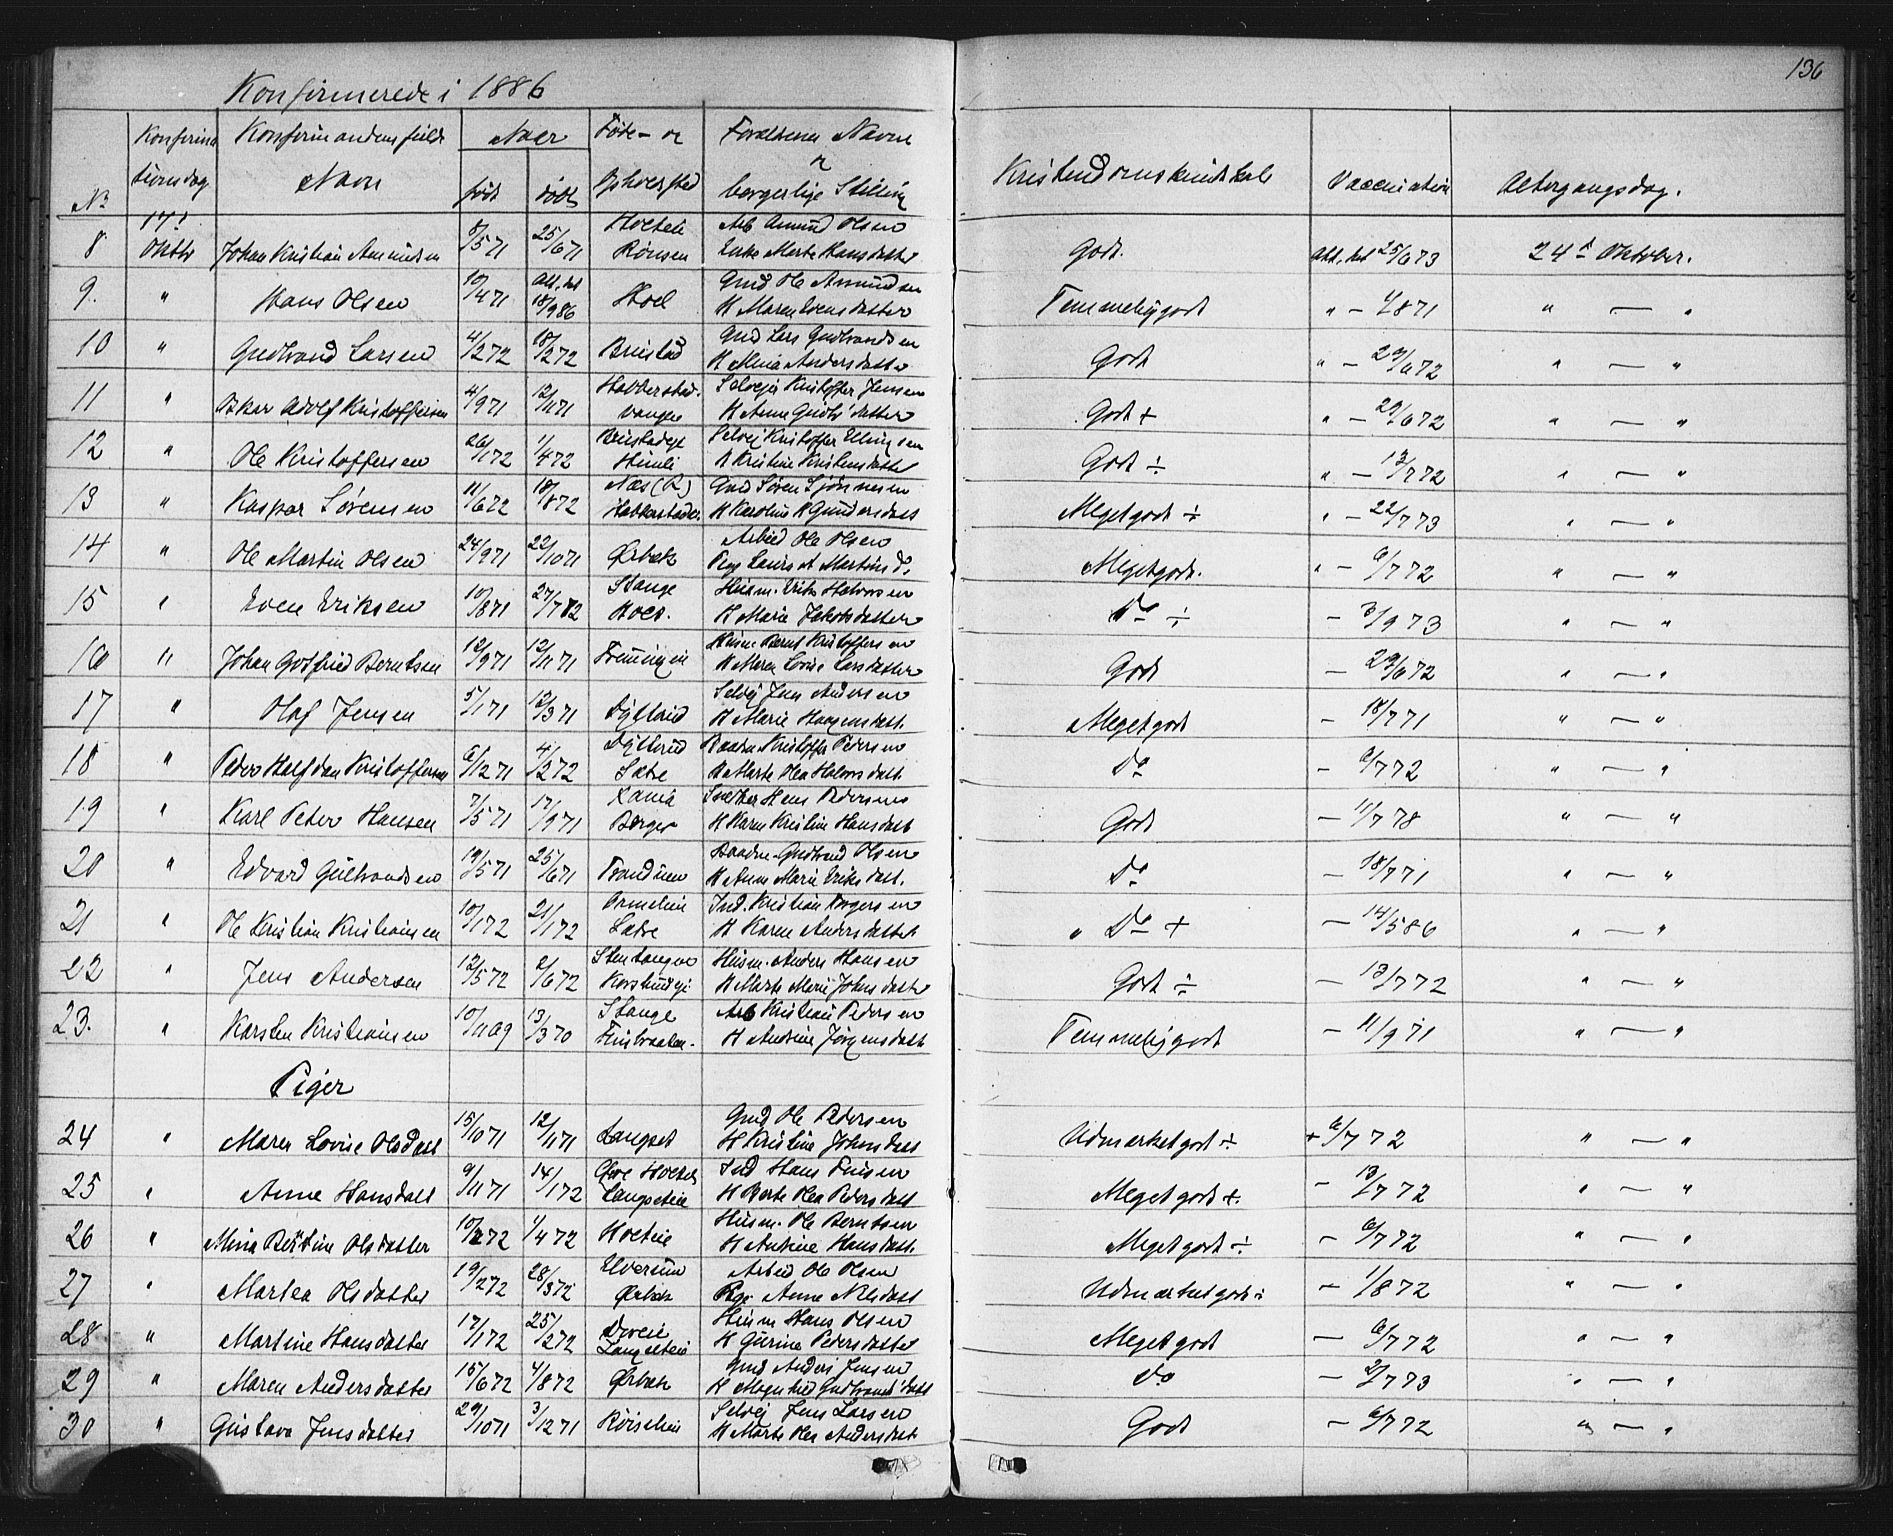 136
Konfirmerede i 1886
No
Konfirma tionsdag
Konfirmandens fulde Navn
Naar
født
døbt
Føde- og Opholdssted
Forældrenes Navne og borgerlige Stilling
Kristendomskundskab
Vaccination
Altergangsdag.
8 17d Oktbr Johan Kristian Amundsen 8/5 71 25/6 71 Rønsen Arb Amund Olsen Enke Marte Hansdatter Godt. Att. dat 25/6 73 24d Oktober.
9. " Hans Olsen 10/4 71 Att. dat 18/9 86 Hoel Gmd Ole Amundsen H Maren Evensdatter Temmelig godt " - 871 " — "
10 " Gudbrand Larsen 4/2 72 18/2 72 Gmd Lars Gudbrandsen H Mina Andersdatter Godt " - 29/6 72 " — "
11 " Oskar Adolf Kristoffersen 4/9 71 12/11 71 Selvejer Kristoffer Jensen H Anne Gudb'datter Godt + " - 29/6 72 " — "
12 " Ole Kristoffersen 26/1 72 1/4 72 Selvej Kristoffer H Kristine Kristensdatter Godt ÷ " - 13/7 72 " — "
13 " Kaspar Sørensen 11/6 72 18/8 72 Næs (R) Gmd Søren H Karoline Gundersdatt Meget godt ÷ " - 22/7 73 " — "
14 " Ole Martin Olsen 24/9 71 22/10 71 Ørbæk Arbeid Ole Olsen Pige Laurs A Martins D. Meget godt. " - 6/7 72 " — "
15 " Even Eriksen 10/8 71 27/7 72 Stange Hoel. Husm. Erik Halvorsen H Marie Jakobsdatter Do ÷ - 3/9 73 " — "
16 " Johan Gotfried Berntsen 12/9 71 12/11 71 Husm Bernt Kristoffersen H Maren Lovise Larsdatter Godt - 29/6 72 " — "
17 " Olaf Jensen 5/1 71 12/3 71 Selvej Jens Andersen H Marie Haagensdatt. Meget godt - 18/7 71 " — "
18 " Peder Halfdan Kristoffersen 6/12 71 4/2 72 Sætre Kristoffer Pedersen H Marte Olea Halvorsdatt Do - 6/7 72 " — "
19 " Karl Peter Hansen 7/5 71 17/9 71 Berger Hans Pedersen H Karen Kristine Hansdatt Godt - 11/7 78 " — "
20 " Edvard Gulbrandsen 19/5 71 25/6 71 Trandum Gudbrand Olsen H Anne Marie Eriksdatt. Do - 18/7 71 " — "
21 " Ole Kristian Kristiansen 10/1 72 21/1 72 Sætre Ind. Kristian H Karen Andersdatter " Do + - 14/5 86 " — "
22 " Jens Andersen 12/5 72 2/6 72 Husm. Anders Hansen H Marte Marie Johnsdatter Godt ÷ - 13/7 72 " — "
23. " Karsten Kristiansen 10/11 69 13/3 70 Stange Arb Kristian Pedersen H Andrine Jørgensdatt Temmelig godt - 11/9 71 " — "
Piger
24 " Maren Lovise Olsdatt 15/10 71 12/11 71 Langset Gmd Ole Pedersen H Kristine Johnsdatt Udmærket godt ÷ + 6/7 72 " — "
25 " Anne Hansdatt 9/11 71 14/1 72 Ind Hans H Berte Olea Pedersdatt Meget godt +. - 13/7 72 " — "
26 " Mina Bertine Olsdatter 10/2 72 1/4 72 Husm. Ole Berntsen H Antine Hansdatt. Meget godt ÷ - 6/7 72 " — "
27 " Martea Olsdatter 19/2 72 28/3 72 Elverum Ørbæk Arbeid Ole Olsen Pige Anne Nilsdatt Udmærket godt ÷ - 1/8 72 " — "
28 " Martine Hansdatter 17/1 72 25/2 72 Husm Hans Olsen H Gurine Pedersdatter Meget godt - 6/7 72 " — "
29 " Maren Andersdatter 15/6 72 4/8 72 Ørbæk Gmd Anders Jensen H Magnhild Gudbrandsdatt Do - 2/7 73 " — "
30 " Gustava Jensdatter 29/10 71 3/12 71 Selvej Jens Larsen H Marte Olea Andersdatt Godt - 6/7 72 " — "